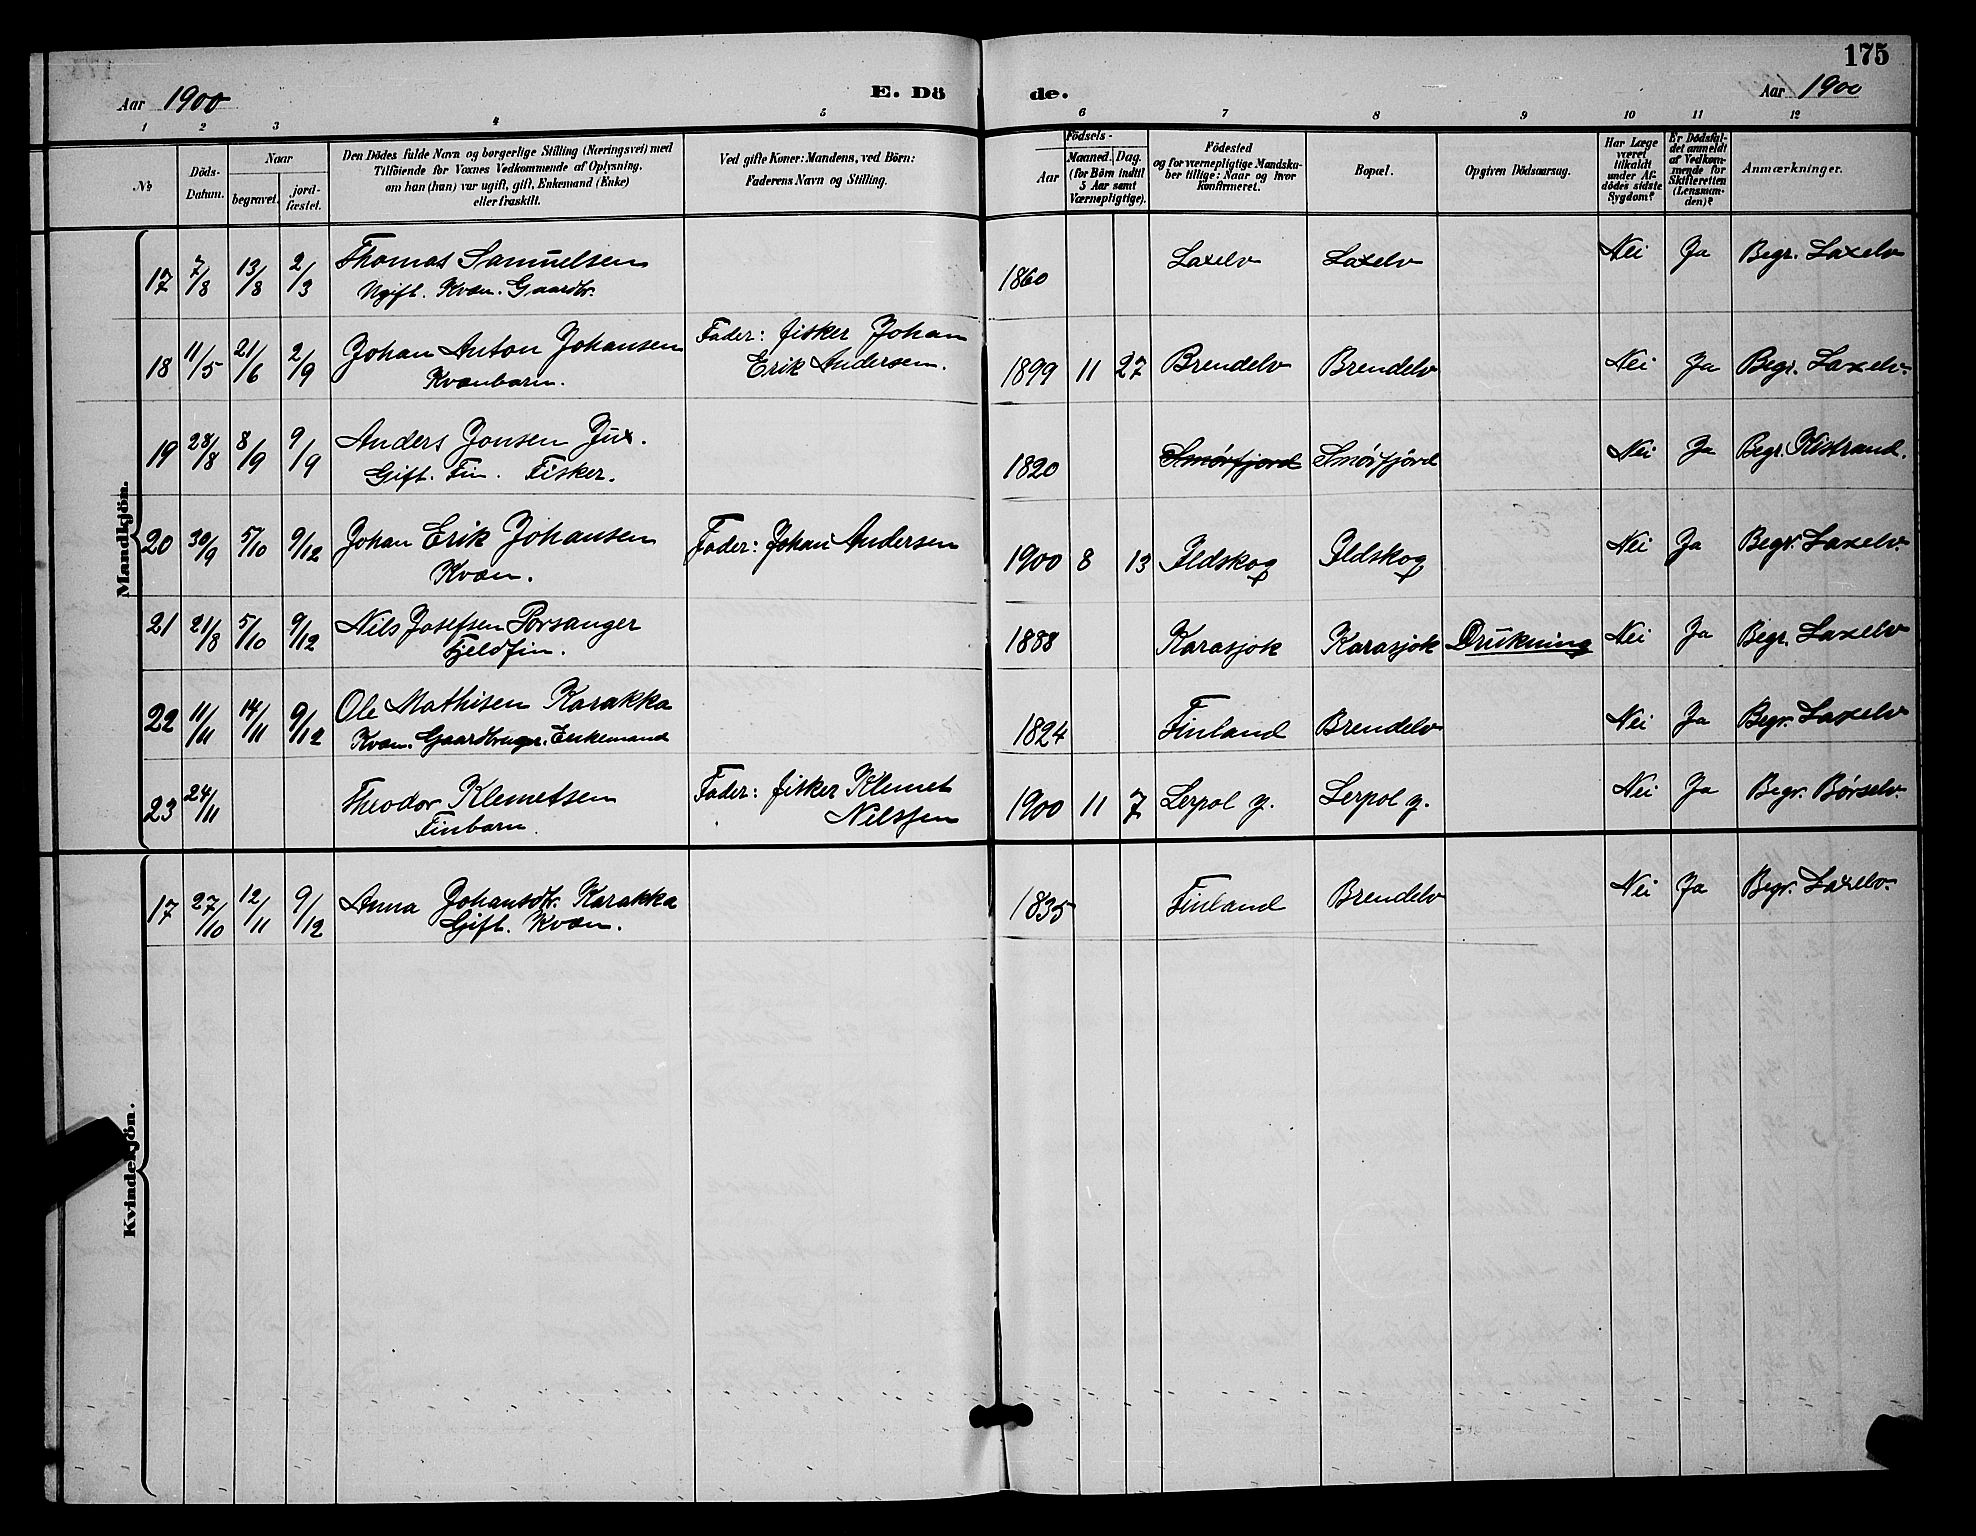 175
Aar 1900
E. Dö de.
Aar 1900
1 2 3 4 5 6 7 8 9 10 11 12
No
Döds-Datum.
Naar
begravet.
jord-fæstet.
Den Dödes fulde Navn og borgerlige Stilling (Næringsvei) med
Tilföiende for Voxnes Vedkommende af Oplysning,
om han (hun) var ugift, gift, Enkemand (Enke)
eller fraskilt.
Ved gifte Koner: Mandens, ved Börn:
Faderens Navn og Stilling.
Födsels-
Aar
Maaned. Dag.
(for Börn indtil
5 Aar samt
Værnepligtige).
Födested
og for værnepligtige Mandska-
ber tillige: Naar og hvor
konfirmeret.
Bopæl.
Opgiven Dödsaarsag.
Har Læge
været
tilkaldt
under Af-
dödes sidste
Sygdom?
Er Dödsfal-
det anmeldt
af Vedkom-
mende for
Skifteretten
(Lensman-
den)?
Anmærkninger.
Mandkjön.
17 7/8 13/8 2/3 Thomas Samuelsen 1860 Laxelv Laxelv Nei Ja Begr. Laxelv
Ugift. Kvæn. Gaardbr.
18 11/5 21/6 2/9 Johan Anton Johansen Fader: fisker Johan 1899 11 27 Brendelv Brendelv Nei Ja Begr. Laxelv.
Kvænbarn. Erik Andersen.
19 28/8 8/9 9/9 Anders Jonsen Jux. 1820 Smörfjord Smörfjörd Nei Ja Begr. Kistrand.
Gift. Fin. Fisker.
20 30/9 5/10 9/12 Johan Erik Johansen Fader: Johan Andersen 1900 8 13 Ildskog Ildskog Nei Ja Begr. Laxelv.
Kvæn.
21 21/8 5/10 9/12 Nils Josefsen Porsanger 1888 Karasjok Karasjok Drukning Nei Ja Begr. Laxelv
Fjeldfin.
22 11/11 14/11 9/12 Ole Mathisen Karakka 1824 Finland Brendelv Nei Ja Begr. Laxelv
Kvæn. Gaardbruger. Enkemand
23 24/11 Theodor Klemetsen Fader: fisker Klemet 1900 11 7 Lerpol y. Lerpol y. Nei Ja Begr. Børselv.
Finbarn. Nilssen
Kvindekjön.
17 27/10 12/11 9/12 Anna Johansdtr. Karakka 1835 Finland Brendelv Nei Ja Begr. Laxelv.
Gift. Kvæn.